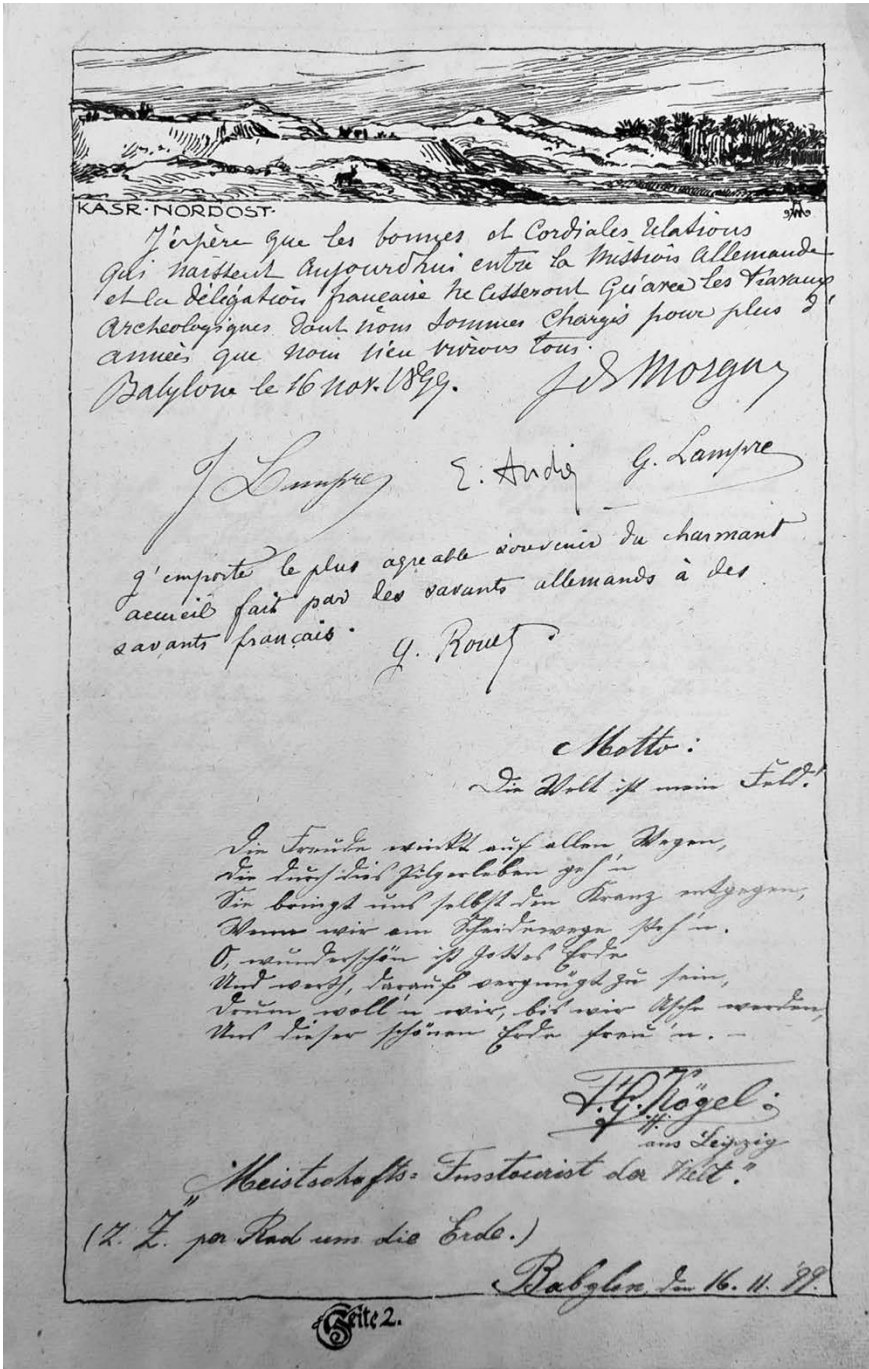 KASR·NORDOST·
J'espère que les bonnes et Cordiales relations
qui naissent aujourdhui entre la mission allemande
et la délégation française ne cesseront qu'avec les travaux
archeologiques dont nous sommes chargés pour plus d'
années que nous n'en vivrons tous.
Babylone le 16 nov. 1899. J de Morgan
J Lampre E. André G. Lampre
J'emporte le plus agreable souvenir du charmant
accueil fait par les savants allemands à des
savants français.
G. Rouet
Motto:
Die Welt ist mein Feld!
Die Freude winkt auf allen Wegen,
Die durch dies Pilgerleben geh'n
Sie bringt uns selbst den Kranz entgegen,
Wenn wir am Scheidewege steh'n.
O, wunderschön ist Gottes Erde
Und werth, darauf vergnügt zu sein,
Drum woll'n wir, bis wir Asche werden,
Uns dieser schönen Erde freu'n. –
F. G. Kögel:
aus Leipzig
„Meistschafts-Fusstourist der Welt."
(z. Z. per Rad um die Erde.)
Babylon, den 16. 11. 99.
Seite 2.